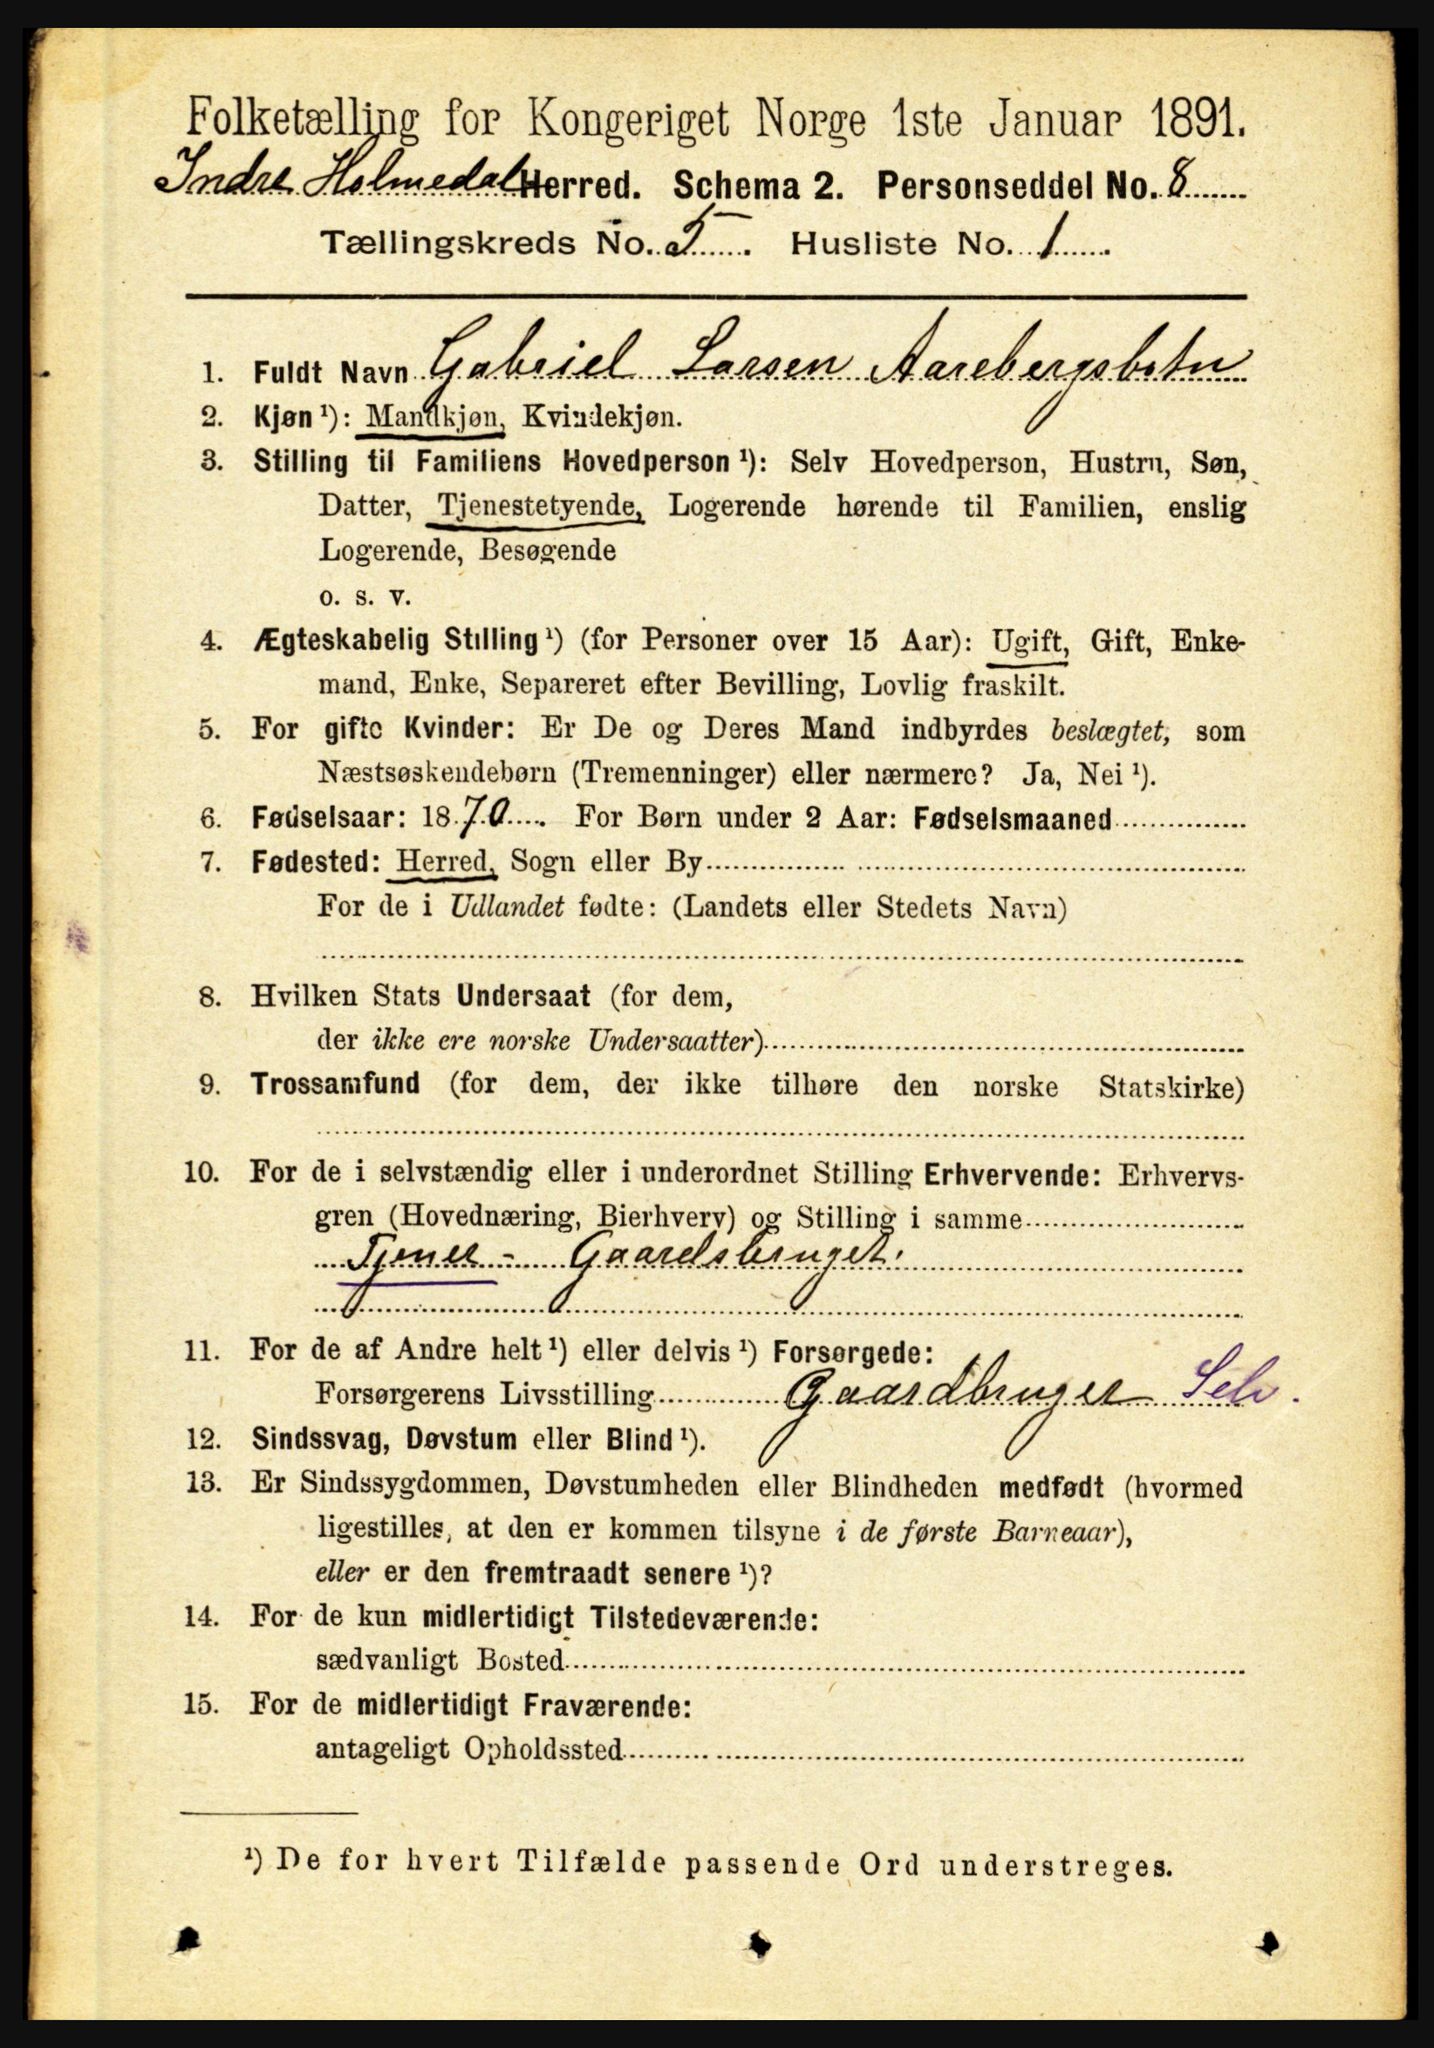 Folketælling for Kongeriget Norge 1ste Januar 1891.
Indre Holmedal Herred. Schema 2. Personseddel No. 8
Tællingskreds No. 5. Husliste No. 1
1. Fuldt Navn Gabriel Larsen Aarebergsbotn
2. Kjøn ¹): Mandkjøn, Kvindekjøn.
3. Stilling til Familiens Hovedperson ¹): Selv Hovedperson, Hustru, Søn,
Datter, Tjenestetyende, Logerende hørende til Familien, enslig
Logerende, Besøgende
o. s. v.
4. Ægteskabelig Stilling ¹) (for Personer over 15 Aar): Ugift, Gift, Enke-
mand, Enke, Separeret efter Bevilling, Lovlig fraskilt.
5. For gifte Kvinder: Er De og Deres Mand indbyrdes beslægtet, som
Næstsøskendebørn (Tremenninger) eller nærmere? Ja, Nei ¹).
6. Fødselsaar: 1870. For Børn under 2 Aar: Fødselsmaaned
7. Fødested: Herred, Sogn eller By
For de i Udlandet fødte: (Landets eller Stedets Navn)
8. Hvilken Stats Undersaat (for dem,
der ikke ere norske Undersaatter)
9. Trossamfund (for dem, der ikke tilhøre den norske Statskirke)
10. For de i selvstændig eller i underordnet Stilling Erhvervende: Erhvervs-
gren (Hovednæring, Bierhverv) og Stilling i samme
Tjener - Gaardsbruget.
11. For de af Andre helt ¹) eller delvis ¹) Forsørgede:
Forsørgerens Livsstilling Gaardbruger Selv.
12. Sindssvag, Døvstum eller Blind ¹).
13. Er Sindssygdommen, Døvstumheden eller Blindheden medfødt (hvormed
ligestilles, at den er kommen tilsyne i de første Barneaar),
eller er den fremtraadt senere ¹)?
14. For de kun midlertidigt Tilstedeværende:
sædvanligt Bosted
15. For de midlertidigt Fraværende:
antageligt Opholdssted
¹) De for hvert Tilfælde passende Ord understreges.